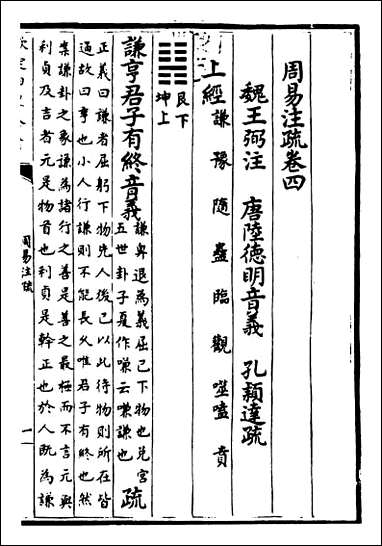 周易注疏卷四
魏王弼注　唐陸德明音義　孔穎達疏
上經謙豫隨蠱臨觀噬嗑賁
艮下
坤上
謙亨君子有終音義
謙卑退為義屈己下物也兑宫
五世卦子夏作嗛云嗛謙也
疏
正義曰謙者屈躬下物先人後己以此待物則所在皆
通故曰亨也小人行謙則不能長久唯君子有終也然
案謙卦之象謙為諸行之善是善之最極而不言元與
利貞及言者元是物首也利貞是幹正也於人既為謙
周易注疏
一